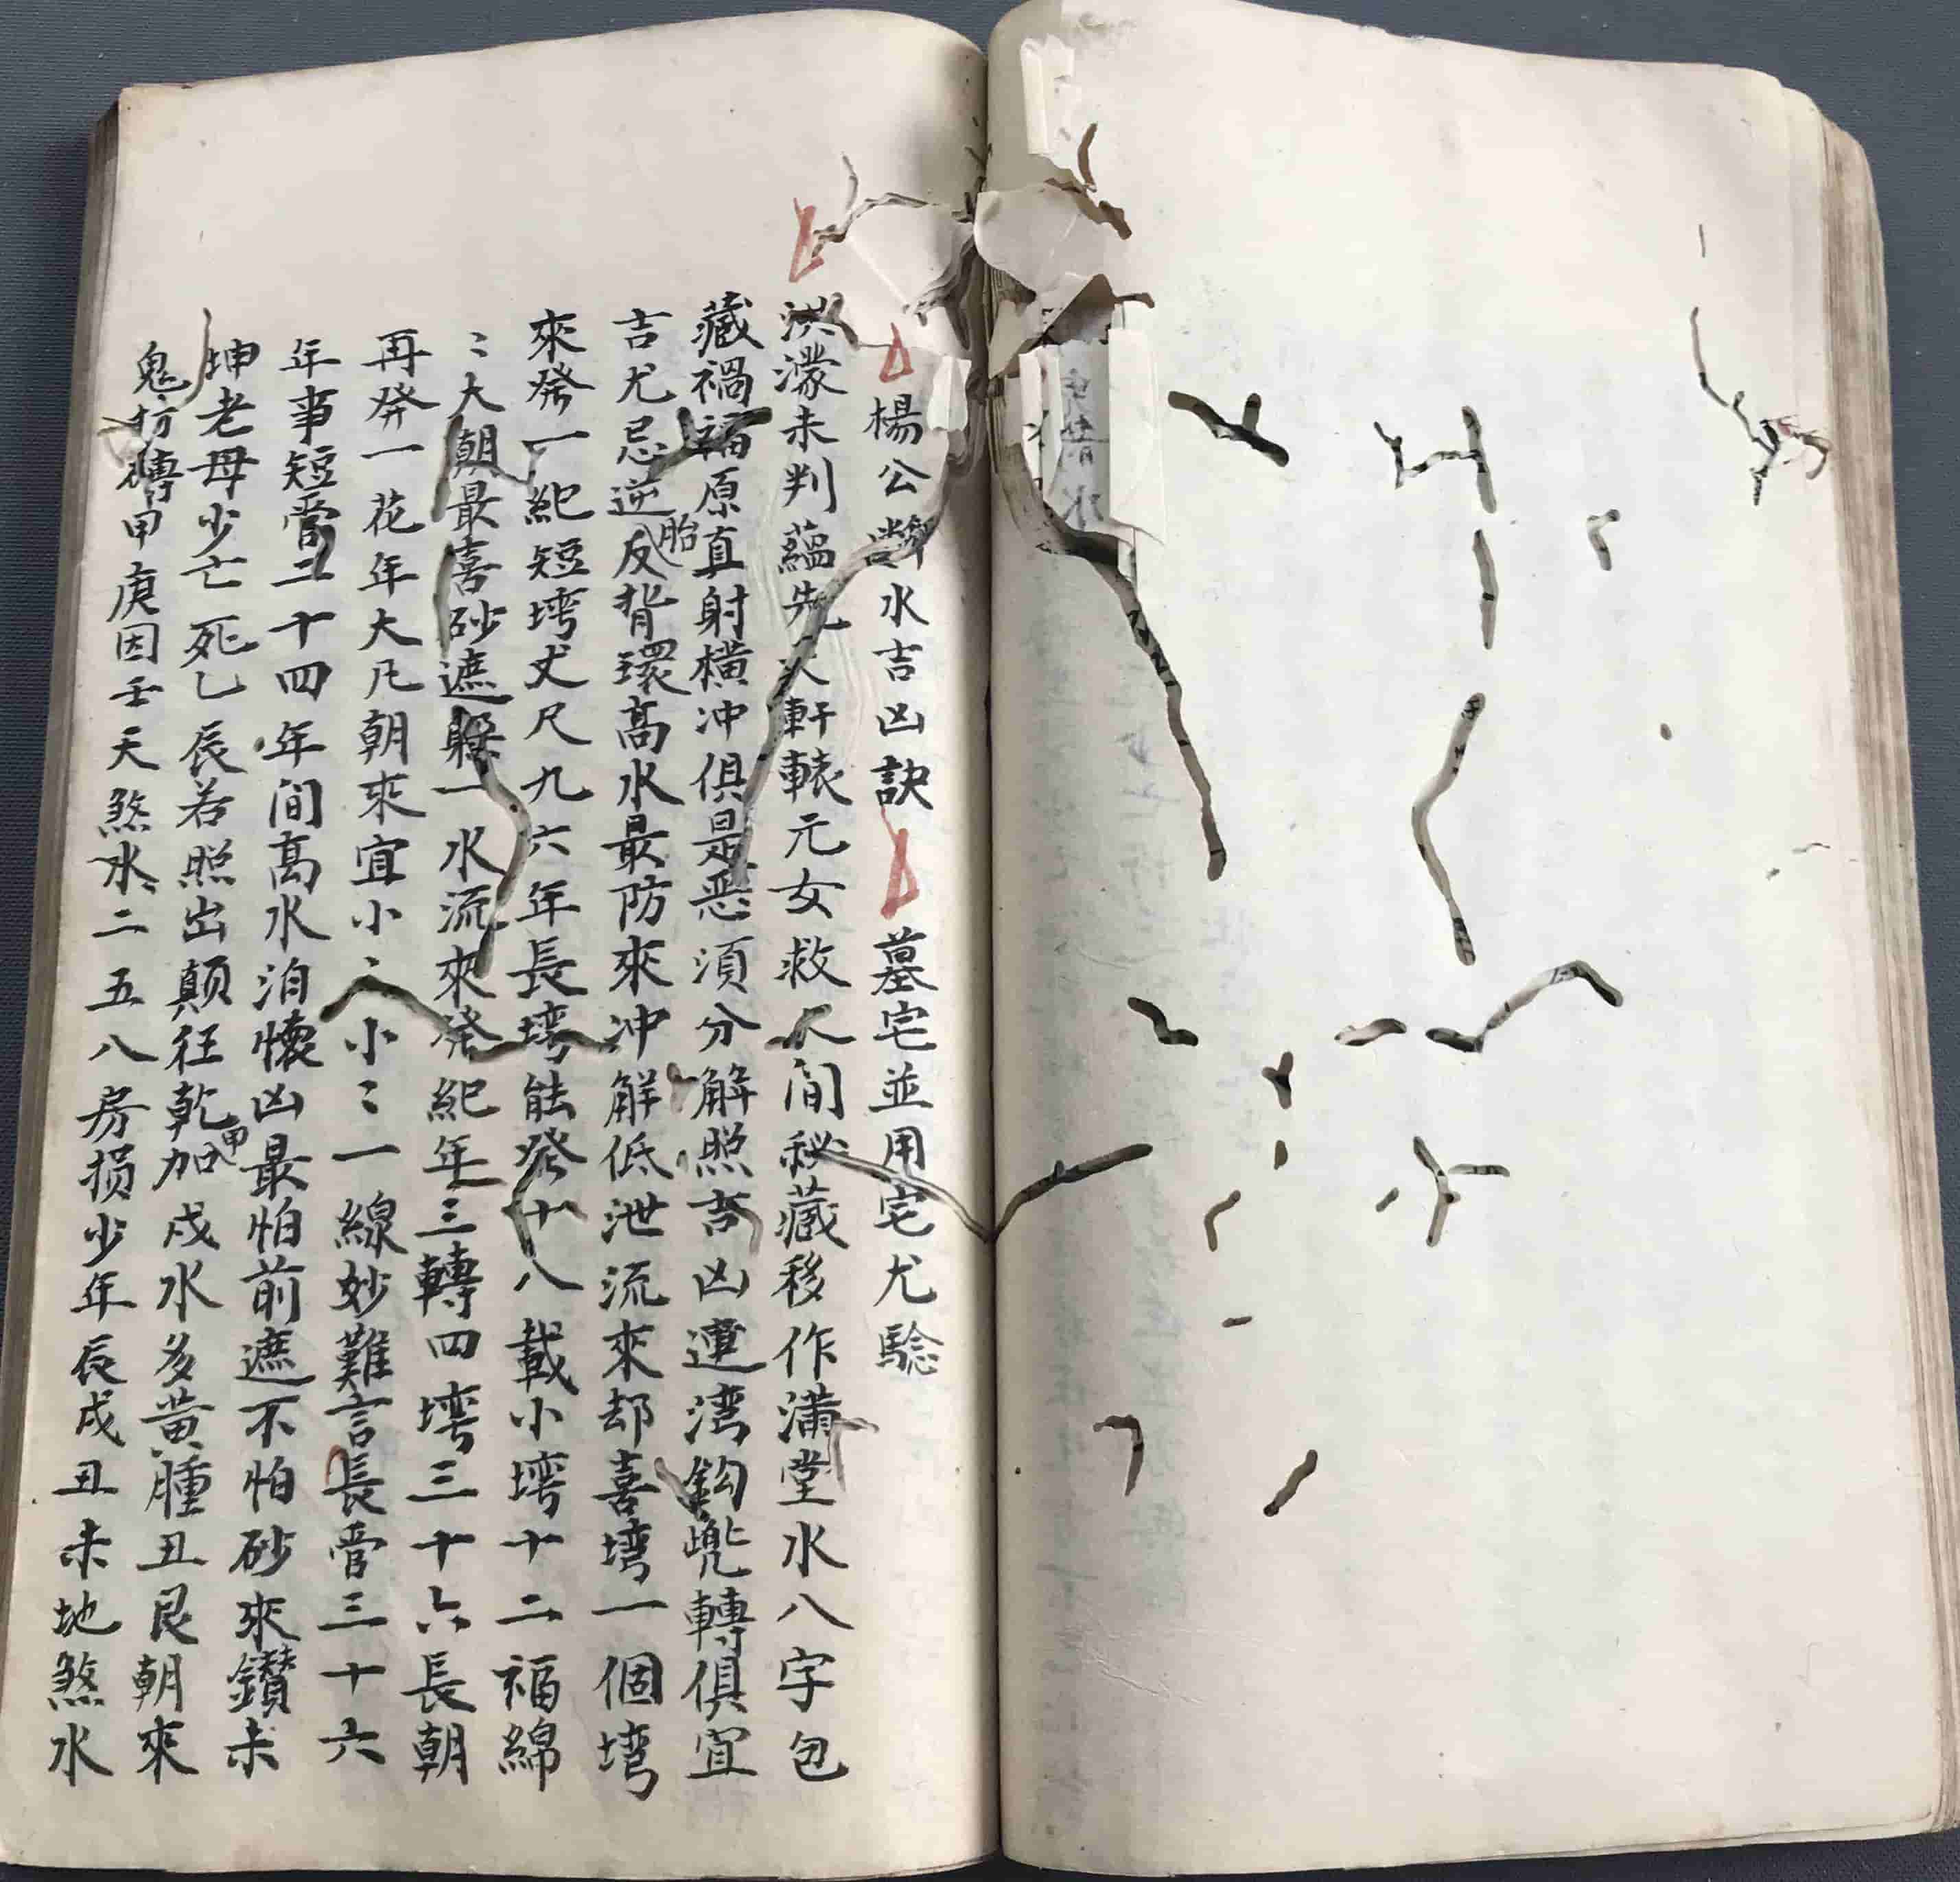 楊公斷水吉凶訣 墓宅並用宅尤驗
洪濛未判蘊先天軒轅元女救人間秘藏移作滿堂水八字包
藏禍福原真射橫冲俱是惡須分解照吉凶連湾鈎兠轉俱宜
吉尤忌逆反背環高水最防來冲觧低泄流來却喜塆一個塆
胎
來發一紀短塆丈尺九六年長塆能發十八載小塆十二福綿
〻大朝最喜砂遮躲一水流來發紀年三轉四塆三十六長朝
再發一花年大凢朝來宜小〻小〻一線妙難言長管三十六
年事短管二十四年间高水泊懷凶最怕前遮不怕砂來鑽未
坤老母少亡死乙辰若照出顛狂乾加戍水多黄腫丑艮朝來
甲
鬼轉甲庚因壬天煞水〻二五八房損少年辰戍丑未地煞水